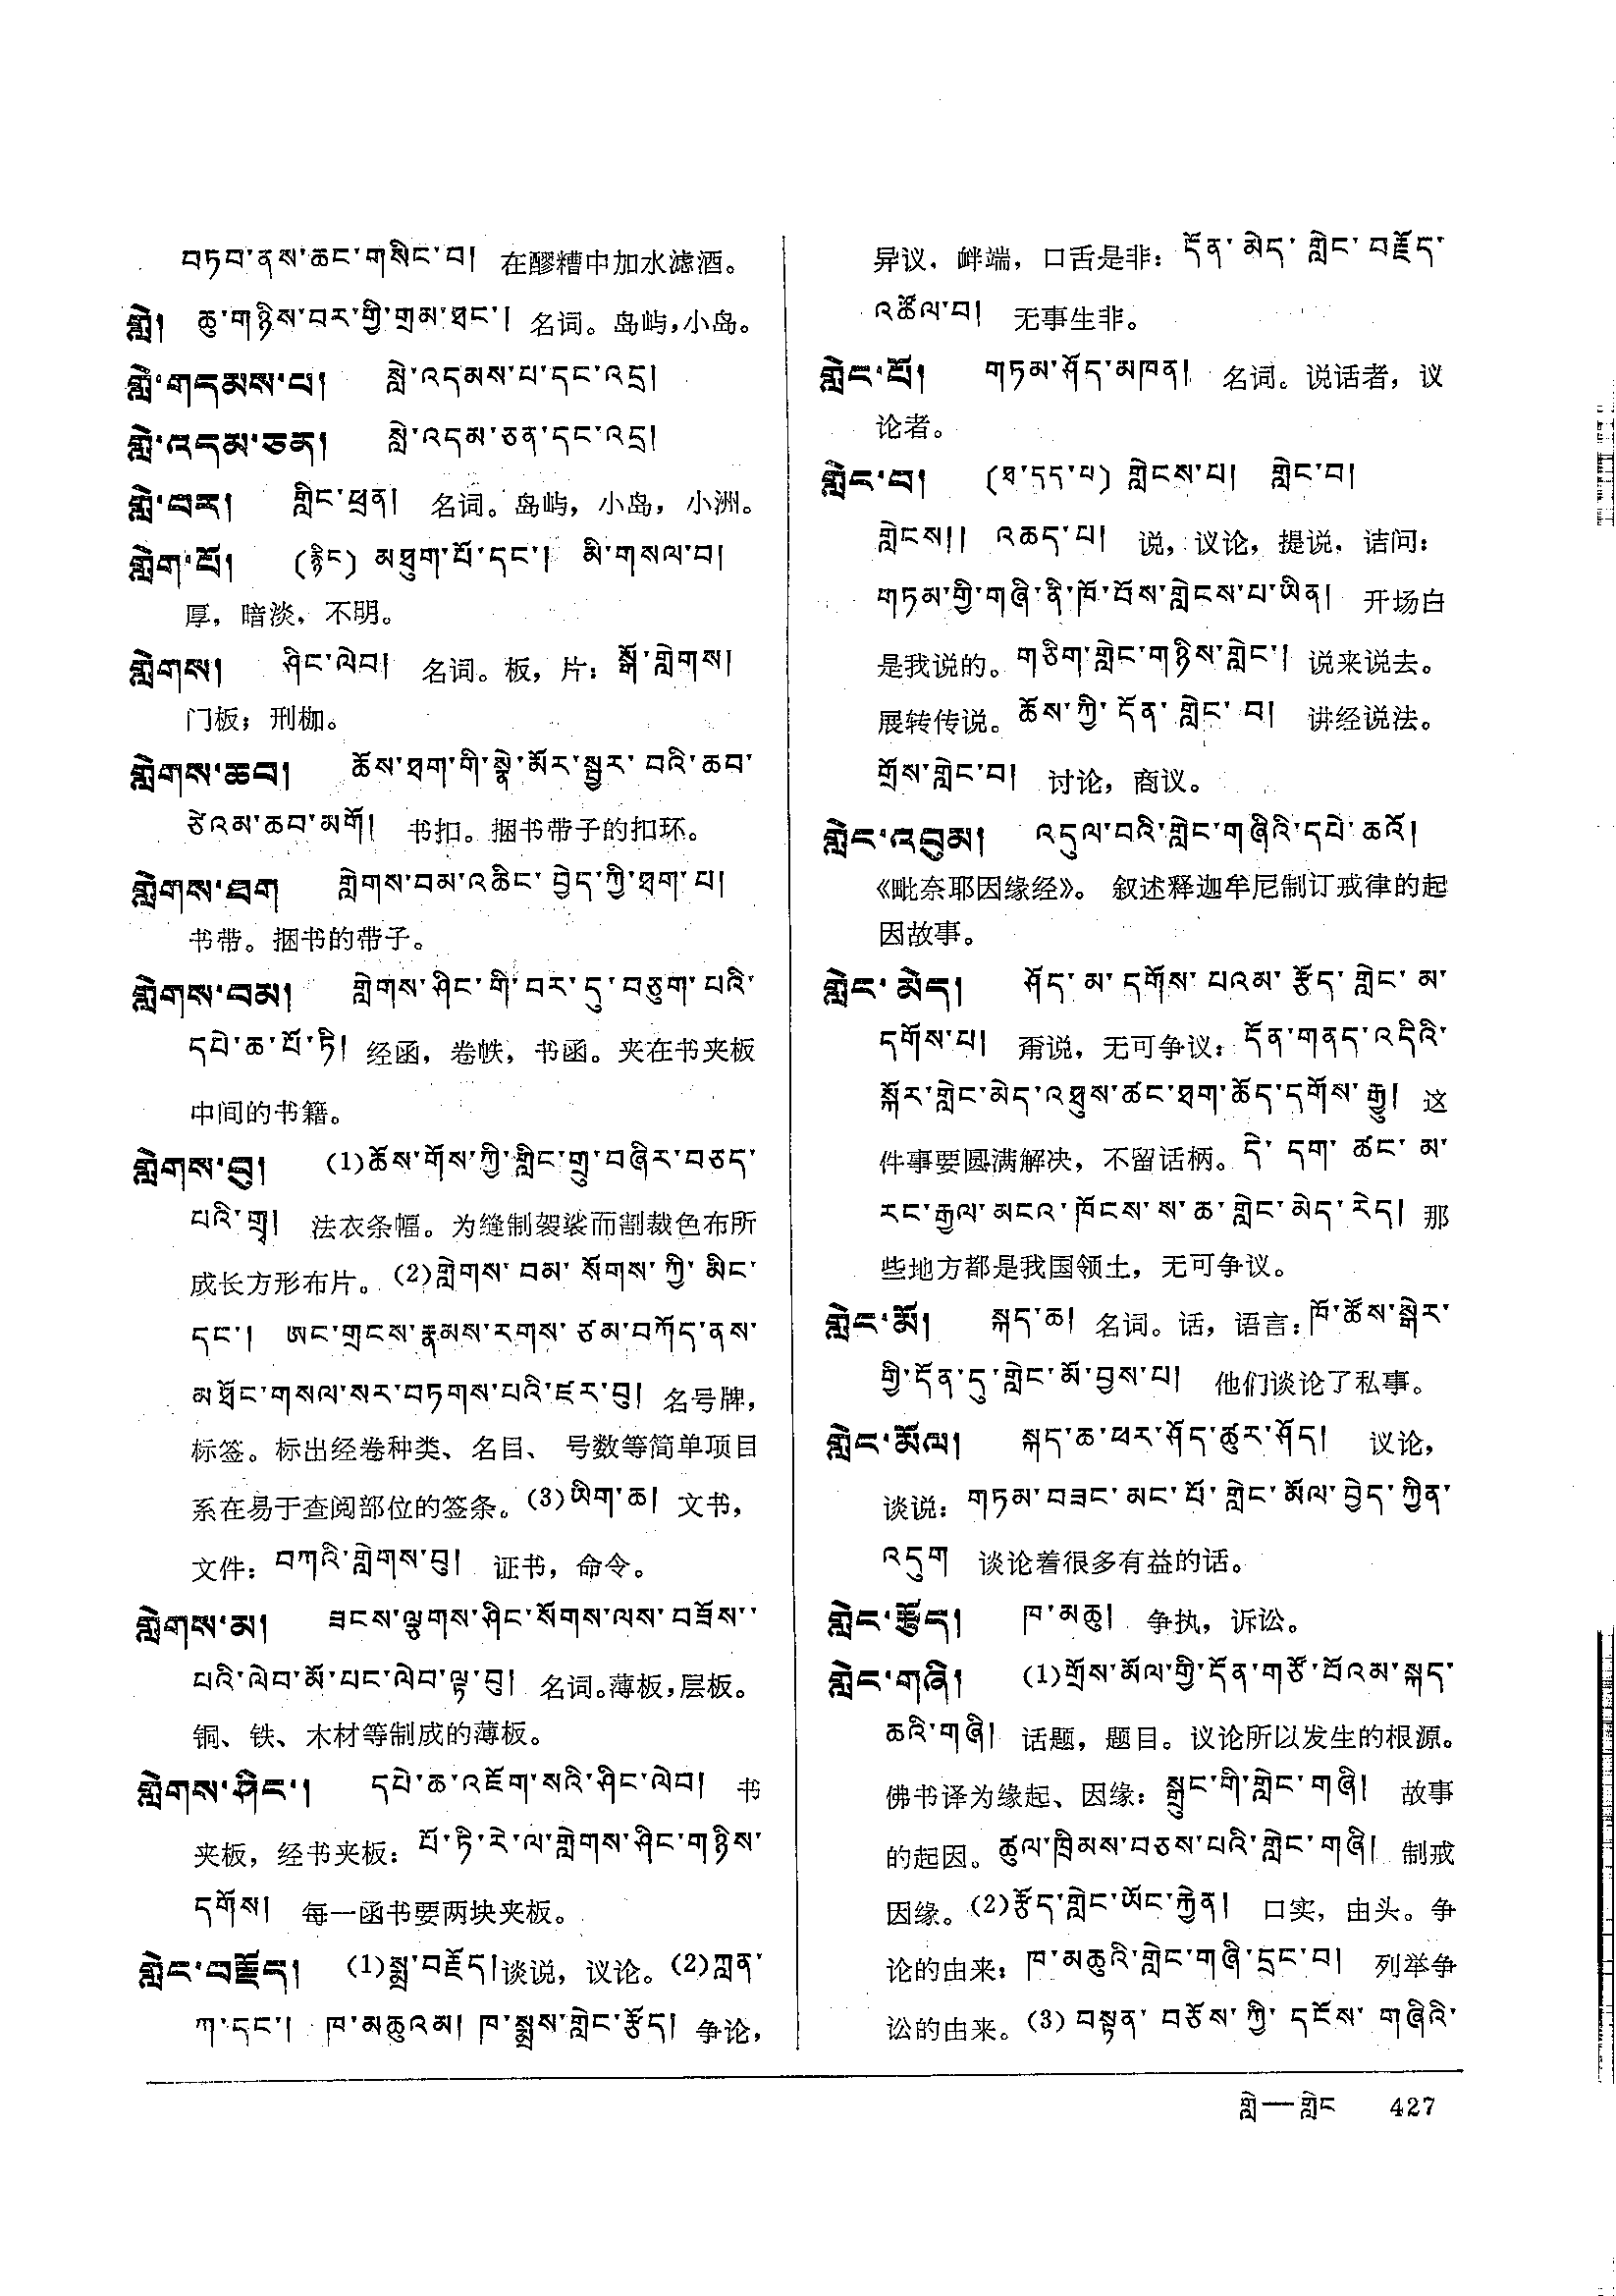 བཏབ་ནས་ཆང་གསིང་བ། 在醪糟中加水滤酒。
གླེ། ཆུ་གཉིས་བར་གྱི་གྲམ་ཐང་། 名词。岛屿,小岛。
གླེ་གདམས་པ། སླེ་འདམས་པ་དང་འདྲ།
གླེ་འདམ་ཅན། སླེ་འདམ་ཅན་དང་འདྲ།
གླེ་བར། གླིང་ཕྲན། 名词。岛屿，小岛，小洲。
གླེག་པོ། (རྙིང) མཐུག་པོ་དང་། མི་གསལ་བ།
厚，暗淡，不明。
གླེགས། ཤིང་ལེབ། 名词。板，片：སྒོ་གླེགས།
门板；刑枷。
གླེགས་ཆབ། ཆོས་ཐག་གི་སྣེ་མོར་སྦྱར་བའི་ཆབ་
ཙེའམ་ཆབ་མགོ། 书扣。捆书带子的扣环。
གླེགས་ཐག གླེགས་བམ་འཆིང་བྱེད་ཀྱི་ཐག་པ།
书带。捆书的带子。
གླེགས་བམ། གླེགས་ཤིང་གི་བར་དུ་བཅུག་པའི་
དཔེ་ཆ་པོ་ཏི། 经函，卷帙，书函。夹在书夹板
中间的书籍。
གླེགས་བུ། (1)ཆོས་གོས་ཀྱི་གླིང་གྲུ་བཞིར་བཅད་
པའི་གྲྭ། 法衣条幅。为缝制袈裟而割裁色布所
成长方形布片。(2)གླེགས་བམ་སོགས་ཀྱི་མིང་
དང་། ཨང་གྲངས་རྣམས་རགས་ཙམ་བཀོད་ནས་
མཐོང་གསལ་སར་བཏགས་པའི་ཛར་བུ། 名号牌，
标签。标出经卷种类、名目、号数等简单项目
系在易于查阅部位的签条。(3)ཡིག་ཆ། 文书，
文件：བཀའི་གླེགས་བུ། 证书，命令。
གླེགས་མ། ཟངས་ལྕགས་ཤིང་སོགས་ལས་བཟོས་་
པའི་ལེབ་མོ་པང་ལེབ་ལྟ་བུ། 名词。薄板,层板。
铜、铁、木材等制成的薄板。
གླེགས་ཤིང་། དཔེ་ཆ་འཇོག་སའི་ཤིང་ལེབ། 书
夹板，经书夹板：པོ་ཏི་རེ་ལ་གླེགས་ཤིང་གཉིས་
དགོས། 每一函书要两块夹板。
གླེང་བརྗོད། (1)སྨྲ་བརྗོད།谈说，议论。(2)ཀླན་
ཀ་དང་། ཁ་མཆུའམ། ཁ་སྨྲས་གླེང་རྩོད། 争论，
异议，衅端，口舌是非：དོན་མེད་གླེང་བརྗོད་
འཚོལ་བ། 无事生非。
གླེང་པོ། གཏམ་ཤོད་མཁན། 名词。说话者，议
论者。
གླེང་བ། (ཐ་དད་པ) གླེངས་པ། གླེང་བ།
གླེངས།། འཆད་པ། 说，议论，提说，诘问：
གཏམ་གྱི་གཞི་ནི་ཁོ་བོས་གླེངས་པ་ཡིན། 开场白
是我说的。གཅིག་གླེང་གཉིས་གླེང་། 说来说去。
展转传说。ཆོས་ཀྱི་དོན་གླེང་བ། 讲经说法。
གྲོས་གླེང་བ། 讨论，商议。
གླེང་འབུམ། འདུལ་བའི་གླེང་གཞིའི་དཔེ་ཆའོ།
《毗奈耶因缘经》。叙述释迦牟尼制订戒律的起
因故事。
གླེང་མེད། ཤོད་མ་དགོས་པའམ་རྩོད་གླེང་མ་
དགོས་པ། 甭说，无可争议：དོན་གནད་འདིའི་
སྐོར་གླེང་མེད་འཐུས་ཚང་ཐག་ཆོད་དགོས་རྒྱུ། 这
件事要圆满解决，不留话柄。དེ་དག་ཚང་མ་
རང་རྒྱལ་མངའ་ཁོངས་ས་ཆ་གླེང་མེད་རེད། 那
些地方都是我国领土，无可争议。
གླེང་མོ། སྐད་ཆ། 名词。话，语言：ཁོ་ཚོས་སྒེར་
གྱི་དོན་དུ་གླེང་མོ་བྱས་པ། 他们谈论了私事。
གླེང་མོལ། སྐད་ཆ་ཕར་ཤོད་ཚུར་ཤོད། 议论，
谈说：གཏམ་བཟང་མང་པོ་གླེང་མོལ་བྱེད་ཀྱིན་
འདུག 谈论着很多有益的话。
གླེང་རྩོད། ཁ་མཆུ། 争执，诉讼。
གླེང་གཞི། (1)གྲོས་མོལ་གྱི་དོན་གཙོ་བོའམ་སྐད་
ཆའི་གཞི། 话题，题目。议论所以发生的根源。
佛书译为缘起、因缘：སྒྲུང་གི་གླེང་གཞི། 故事
的起因。ཚུལ་ཁྲིམས་བཅས་པའི་གླེང་གཞི། 制戒
因缘。(2)རྩོད་གླེང་ཡོང་རྐྱེན། 口实，由头。争
论的由来：ཁ་མཆུའི་གླེང་གཞི་དྲང་བ། 列举争
讼的由来。(3)བསྟན་བཅོས་ཀྱི་དངོས་གཞིའི་
གླེ—གླེང 427